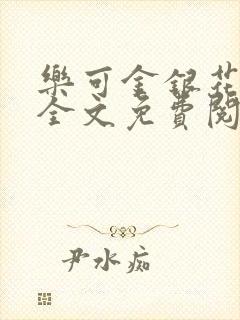 樂可金銀花
全文免費閱
尹水痴